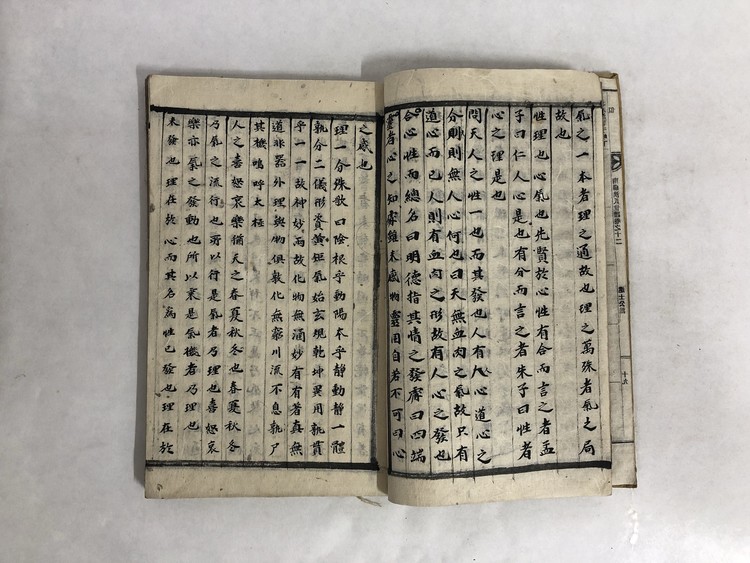 氣之一本者理之通故也理之萬殊者氣之局
故也
性理也心氣也先賢於心性有合而言之者孟
子曰仁人心是也有分而言之者朱子曰性者
心之理是也
問天人之性一也而其發也人有人心道心之
分則則無人心何也曰天無血肉之氣故只有
道心而已人則有血肉之形故有人心之發也
合心性而總名曰明德指其情之發處曰四端
靈者心之知處雖未感物靈用自若不可曰心
之感也
理一分殊歌曰陰根乎動陽本乎靜動靜一體
孰分二儀形資黃短氣始玄規乾坤異用孰貫
乎一一故神妙兩故化物無涵妙有有著真無
道非器外理與物俱軟化無窮川流不息孰尸
其機嗚呼太極
人之喜怒哀樂猶天之春夏秋冬也春夏秋冬
乃氣之流行也所以行是氣者乃理也喜怒哀
樂亦氣之發動也所以乘是氣機者乃理也
未發也理在於心而其名為性已發也理在於